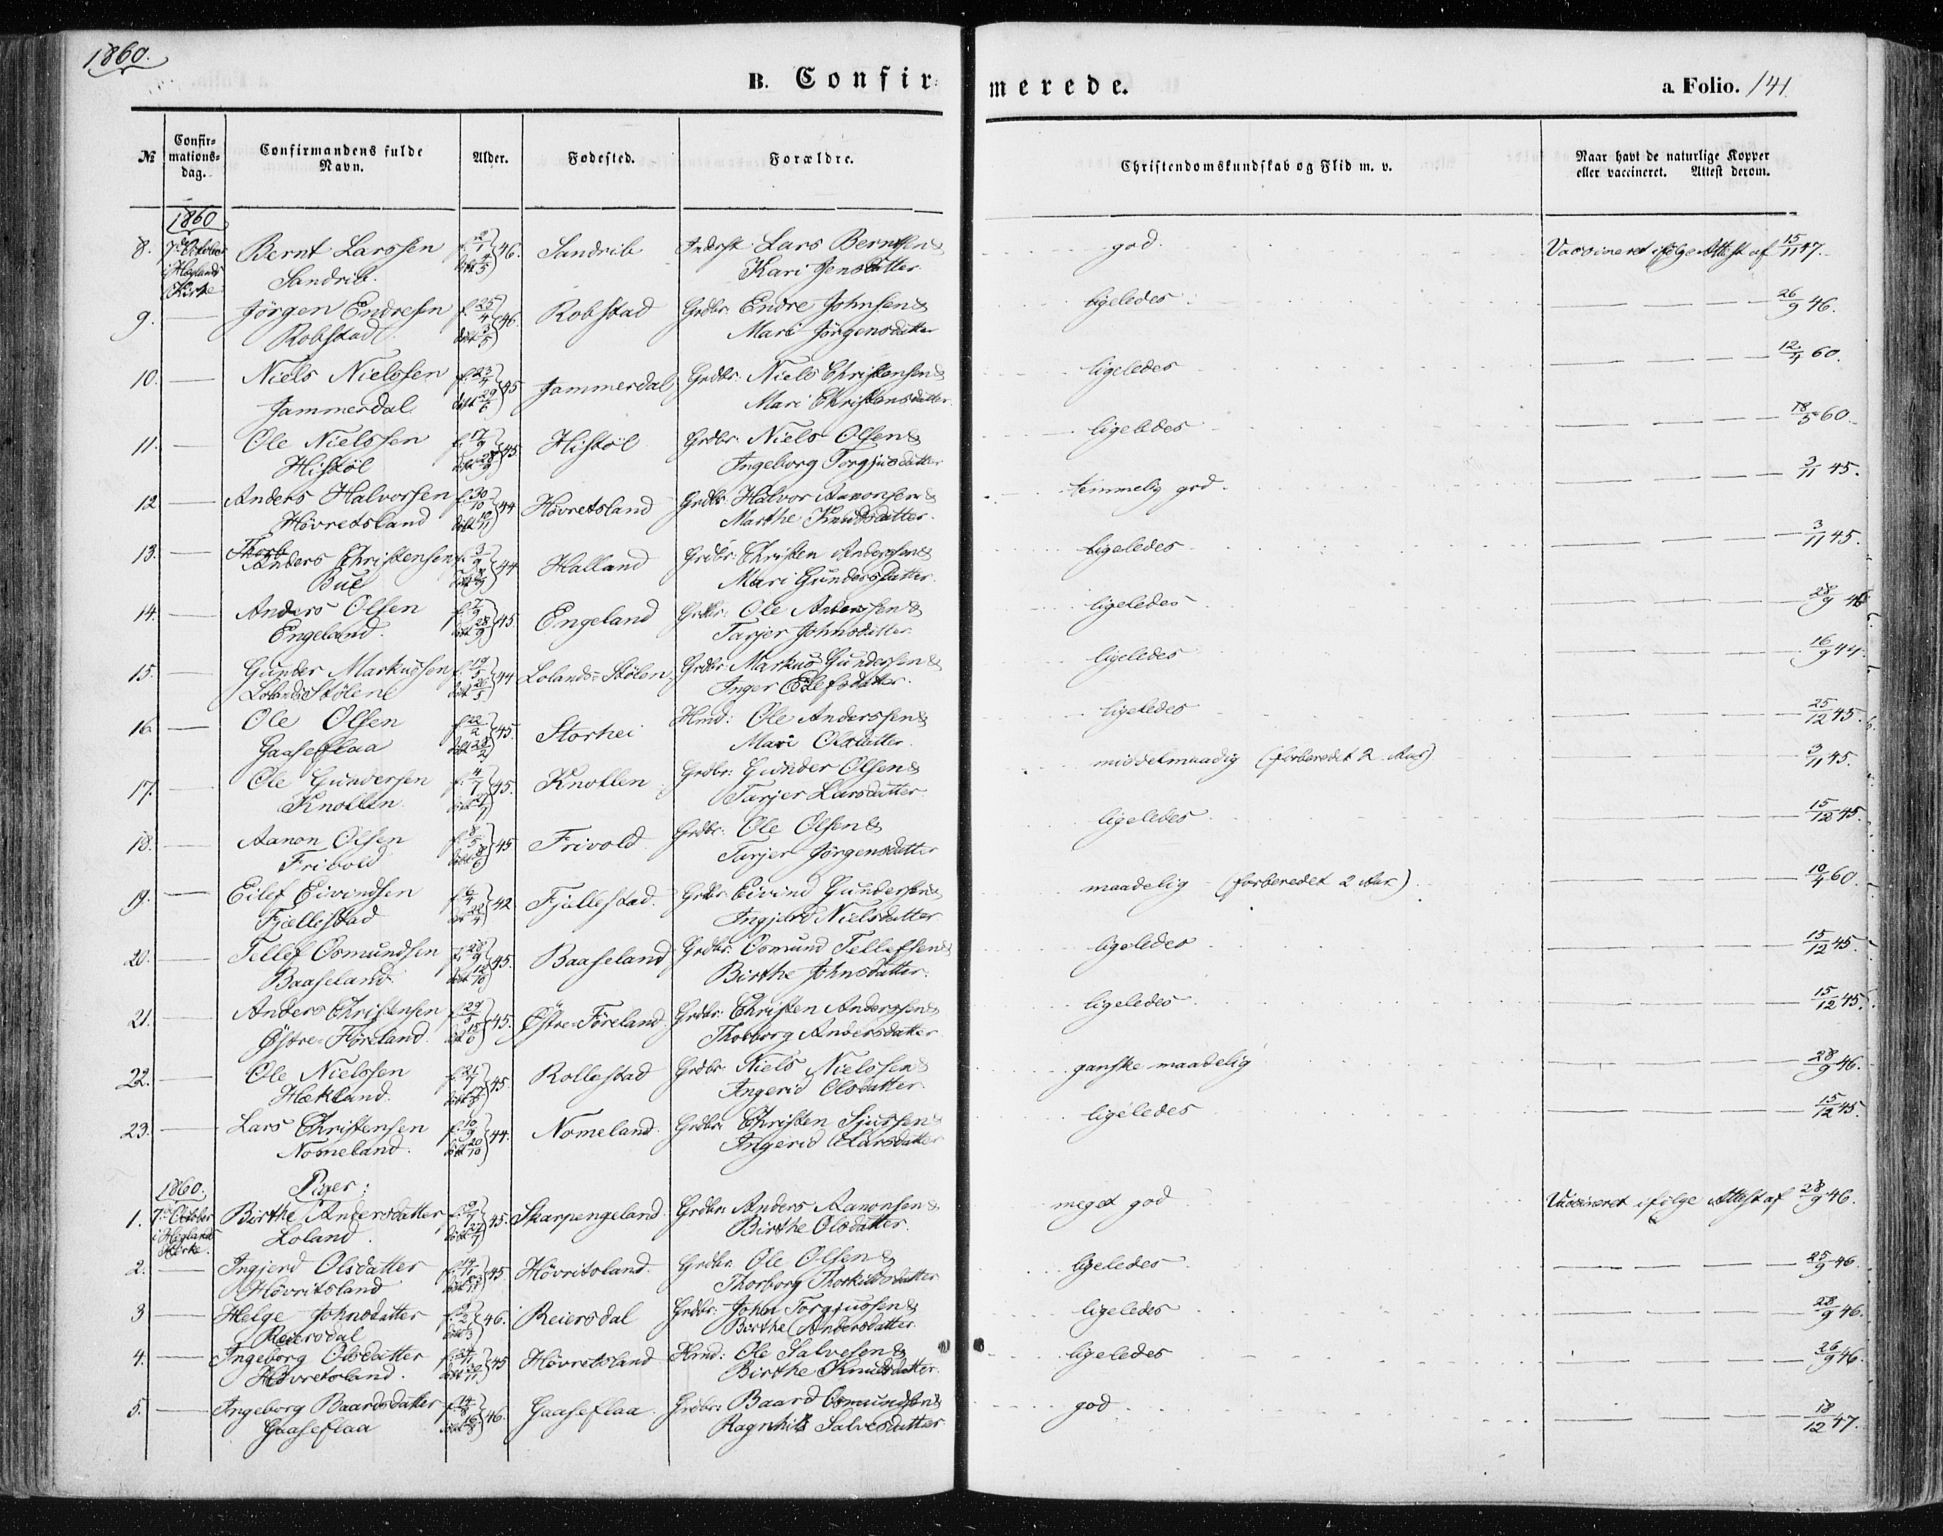 1860.
B. Confir-
merede.
a. Folio. 141.
№
Confir-
mations-
dag.
Confirmandens fulde
Navn.
Alder.
Fødested.
Forældre.
Christendomskundskab og Flid m. v.
Naar havt de naturlige Kopper
eller vaccineret. Attest derom.
1860
8. 7de October Bernt Larssen f. 2/1 46. Sandrib Lars Berntsen & god. Vaccineret ifølge Attest af 15/11 47.
i Heglands Sandrib. Kari Jensdatter
Kirke
9. — Jörgen Endresen f. 25/4 46. Robstad Grdbr: Endre Johnsen & ligeledes — 26/9 46.
Robstad Mari Jörgensdatter
10. — Niels Nielssen f. 23/4 45 Jammerdal Grdbr: Niels Christensen & ligeledes — 12/4 60.
Jammerdal Mari Christensdatter
11. — Ole Nielssen f. 17/9 45. Histöl Grdbr: Niels Olsen & ligeledes — 18/5 60.
Histöl Ingeborg Torgjusdatter
12 — Anders Halvorsen f. 30/10 44 Hövretsland Grdbr: Halvor Aanonsen & temmelig god. — 3/11 45.
Hövretsland Marthe Knudsdatter.
13. — Anders Christensen f. 3/9 44 Halland Grdbr: Christen Anderssen & ligeledes — 3/11 45.
Bue Mari Gundersdatter.
14. — Anders Olsen 45 Engeland Grdbr: Ole Anderssen & ligeledes — 28/9 46
Engeland. Tarjer Johnsdatter.
15. — Gunder Markussen f. 19/5 44 Lolands-Stölen Grdbr: Markus Gunderssen & ligeledes — 16/9 44.
Lolands Stölen Inger Eilefsdatter.
16. — Ole Olsen f. 22/2 45. Storhei Hmd: Ole Anderssen & ligeledes — 25/12 45.
Gaaseflaa Mari Olsdatter.
17. — Ole Gundersen f. 4/7 45. Knollen Grdbr: Gunder Olsen & middelmaadig (forberedet 2 Aar) — 3/11 45.
Knollen. Tarjer Larsdatter
18. — Aanon Olsen f. 8/5 45 Frivold Grdbr: Ole Olsen & ligeledes — 15/12 45.
Frivold Tarjer Jörgensdatter
19. — Eilef Eivindsen f. 6/4 42 Fjellestad. Grdbr: Eivind Gundersen & maadelig (forberedet 2 Aar) — 10/4 60.
Fjellestad Ingjerd Nielsdatter
20. — Tellef Osmundsen f. 28/9 45. Baaseland Grdbr: Osmund Tellefsen & ligeledes — 15/12 45.
Baaseland. Birthe Johnsdatter.
21. — Anders Christensen f. 29/5 45. Östre-Föreland Grdbr: Christen Anderssen & ligeledes — 15/12 45.
Östre-Föreland. Thorborg Andersdatter
22. — Ole Nielssen f. 21/7 45 Rollestad Grdbr: Niels Nielssen & ganske maadelig — 28/9 46.
Hækland. Ingerid Olsdatter
23. — Lars Christensen f. 10/9 44. Nomeland Grdbr: Christen Sjursen & ligeledes — 15/12 45.
Nomeland. Ingerid Larsdatter
1860. Piger:
1. 7de October Birthe Andersdatter 45. Skarpengeland Grdbr: Anders Aanonsen & meget god Vaccineret ifølge Attest af 28/9 46.
i Heglands Loland. Birthe Olsdatter.
Kirke.
2. — Ingjerd Olsdatter 45. Hövretsland Grdbr: Ole Olsen & ligeledes — 25/9 46.
Hövretsland Thorborg Thorkildsdatter
3 — Helge Johnsdatter 46. Reiersdal Grdbr: John Torgjussen & ligeledes — 28/9 46.
Reiersdal Birthe Andersdatter.
4. — Ingeborg Olsdatter 45 Hövretsland Hmd: Ole Salvesen & ligeledes — 26/9 46.
Hövretsland. Birthe Knudsdatter.
5. — Ingeborg Baardsdatter 46. Gaaseflaa Grdbr: Baard Osmundsen & god — 18/12 47.
Gaaseflaa Ragnhild Salvesdatter